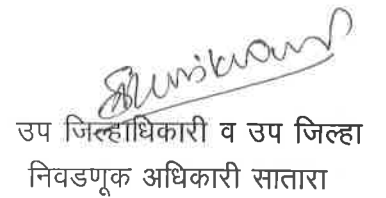 उप जिल्हाधिकारी व उप जिल्हा
निवडणूक अधिकारी सातारा